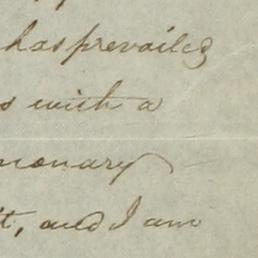 has prevailed
s with a
monary
t, and I am